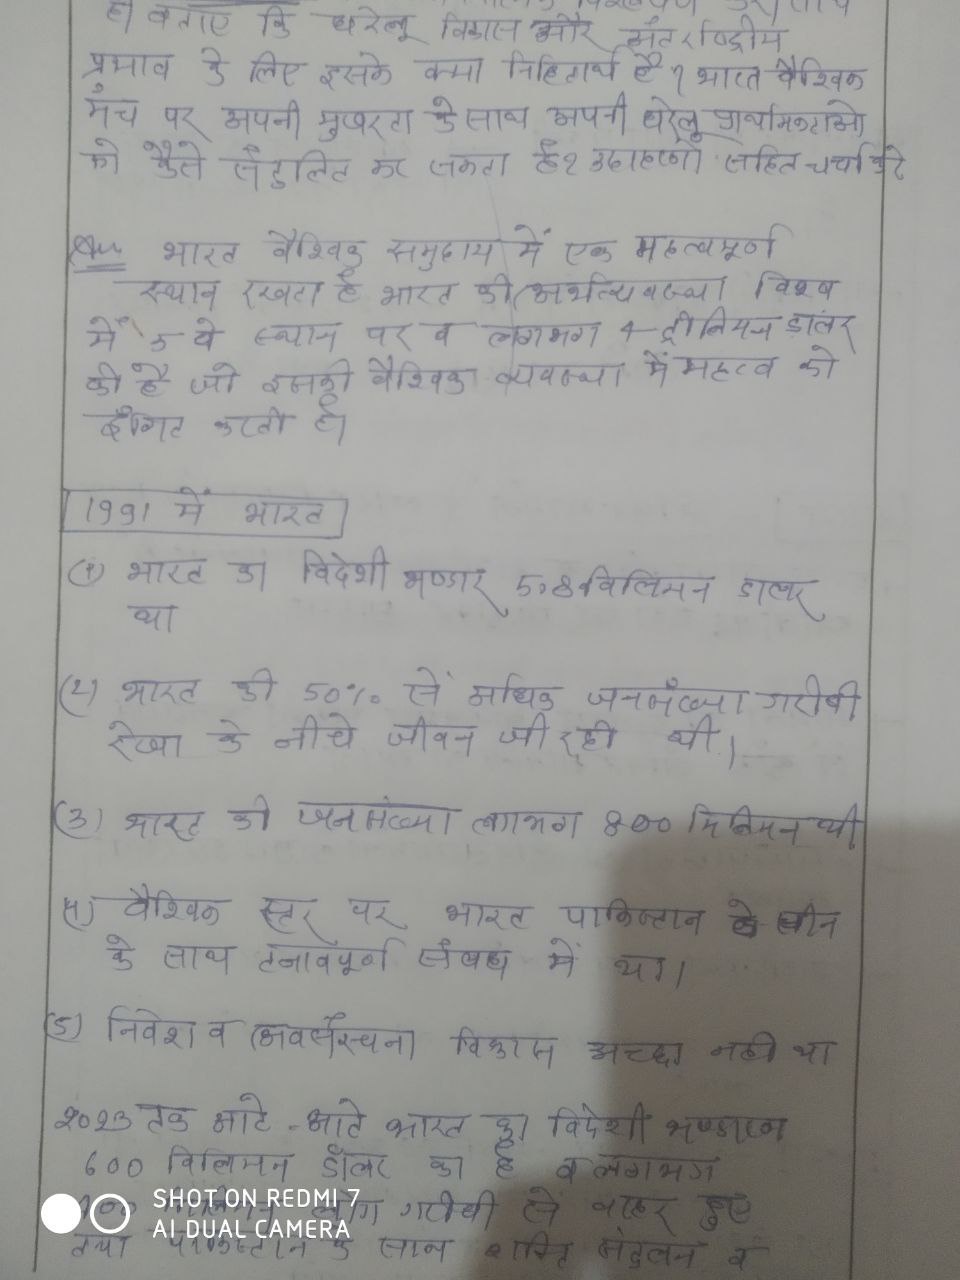 है। बताएं कि घरेलू विकास और अंतर्राष्ट्रीय
प्रभाव के लिए इसके क्या निहितार्थ है? भारत वैश्विक
मंच पर अपनी मुखरता के साथ अपनी घरेलू प्राथमिकताओ
को कैसे संतुलित कर सकता है? उदाहरणों सहित चर्चा करे
भारत वैश्विक समुदाय में एक महत्वपूर्ण
स्थान रखता है भारत की अर्थव्यवस्था विश्व
में 5 वे स्थान पर व लगभग 4 ट्रीलियन डालर
की है जो इसकी वैश्विक व्यवस्था में महत्व को
इंगित करती है।
1991 में भारत
(1) भारत का विदेशी भण्डार 5.8 विलियन डालर
था
(2) भारत की 50% से अधिक जनसंख्या गरीबी
रेखा के नीचे जीवन जी रही थी।
(3) भारत की जनसंख्या लगभग 800 मिलियन थी
4) वैश्विक स्तर पर भारत पाकिस्तान चीन
के साथ तनावपूर्ण संबध में था।
(5) निवेश व अवसंरचना विकास अच्छा नही था
2023 तक आते-आते भारत का विदेशी भण्डार
600 विलियन डॉलर का है व लगभग
लोग गरीबी से बाहर हुए
तथा पाकिस्तान के साथ शक्ति संतुलन
SHOT ON REDMI 7
AI DUAL CAMERA